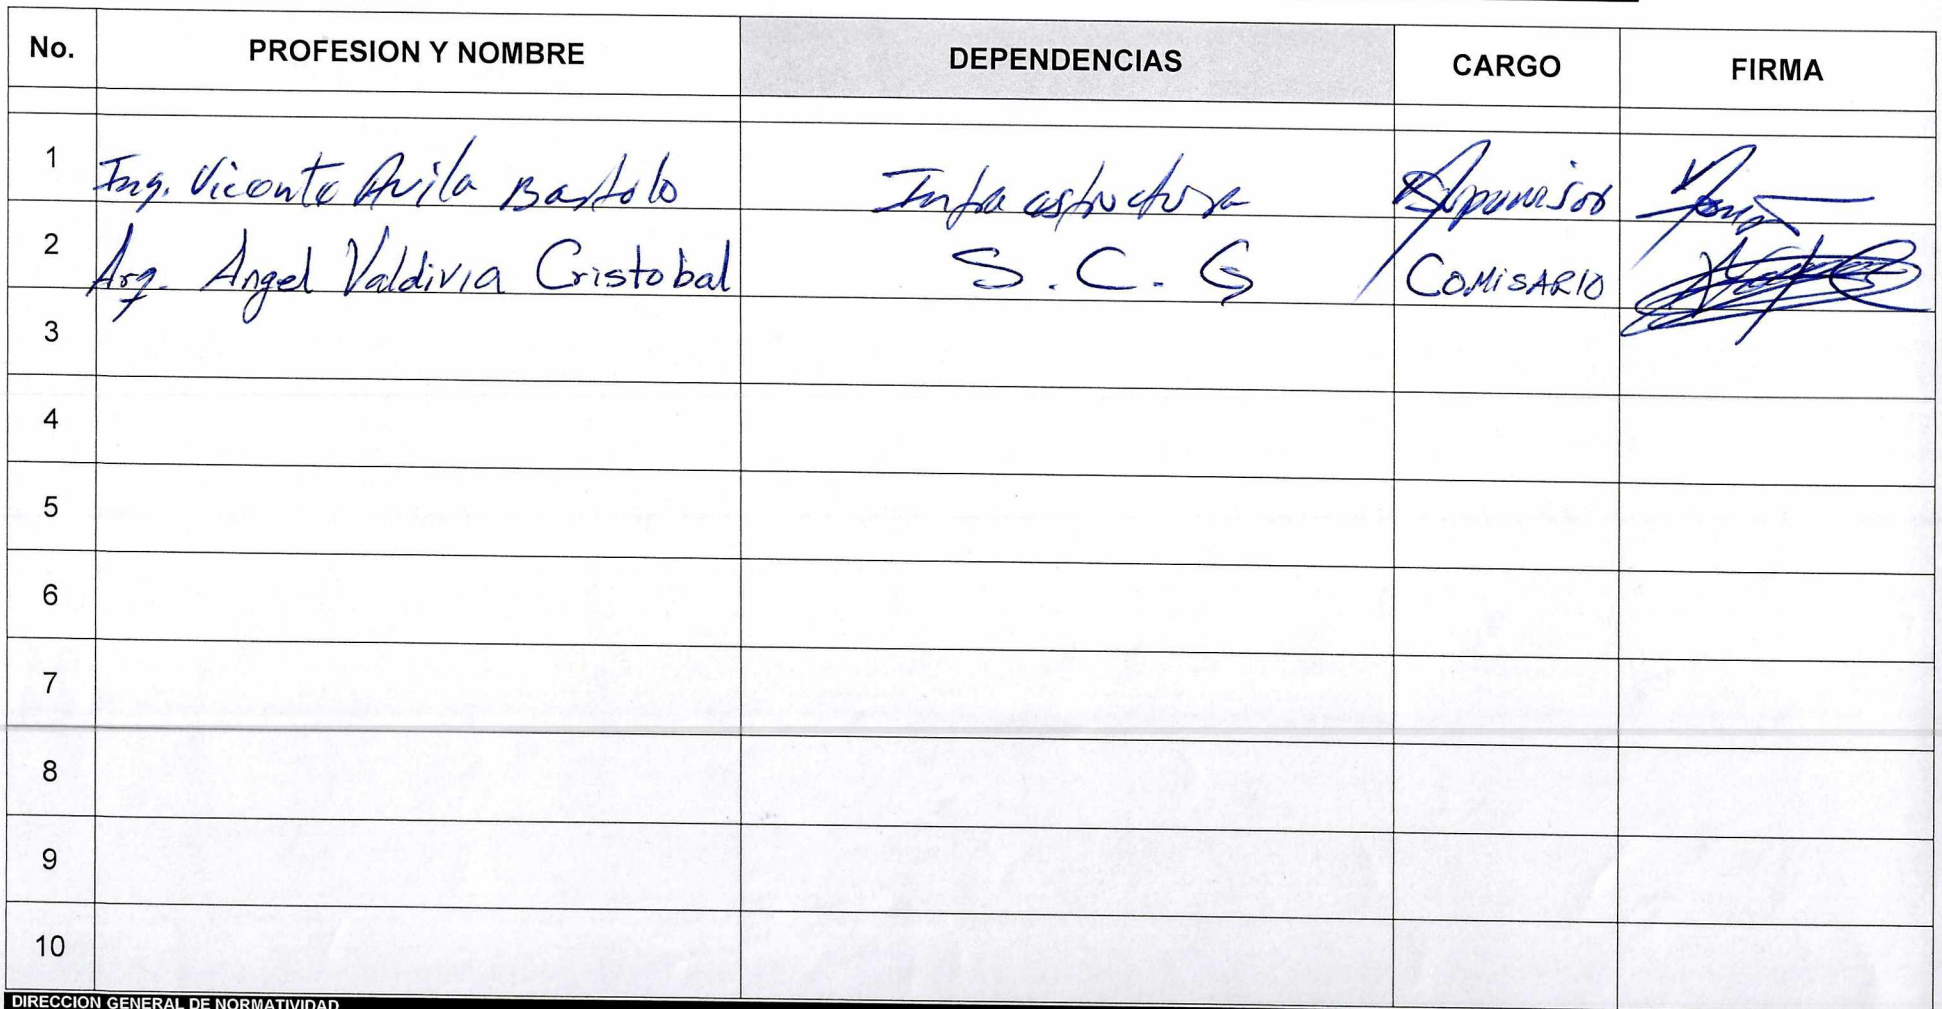 No. PROFESION Y NOMBRE DEPENDENCIAS CARGO FIRMA
1 Ing. Vicente Avila Bartolo Infraestructura Supervisor
2 Arq. Angel Valdivia Cristobal S.C.G COMISARIO
3
4
5
6
7
8
9
10
DIRECCION GENERAL DE NORMATIVIDAD